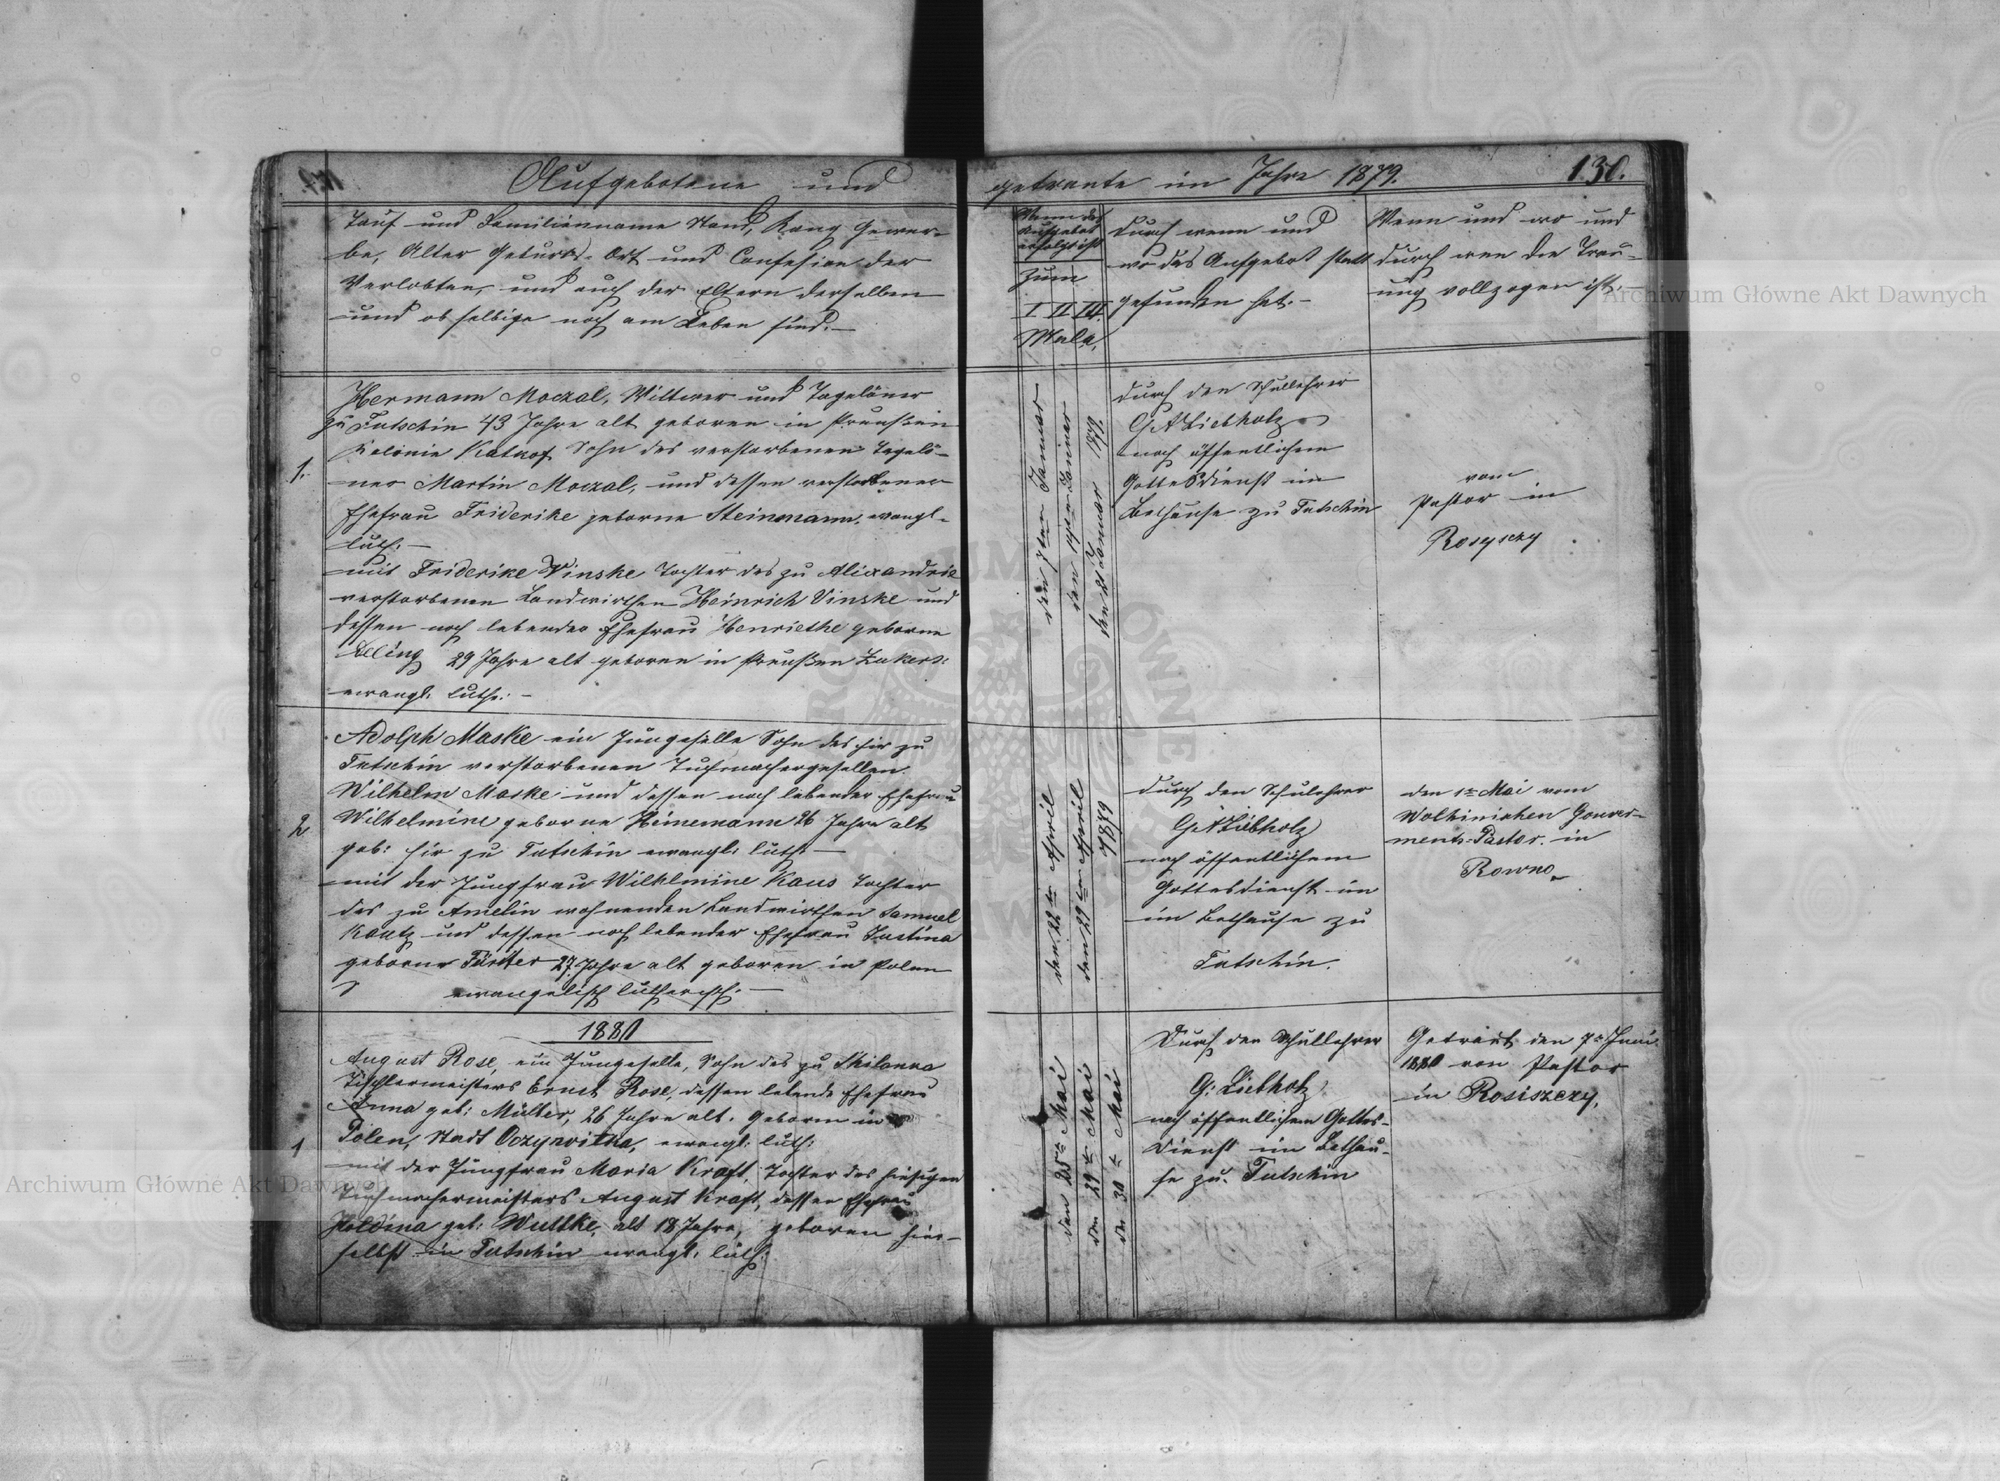 Aufgebotene und getraute im Jahre 1879. 130.
Tauf und Familienname Stand, Rang Gewer-
be, Alter Geburts-Ort und Confesion der
Verlobten, und auch der Eltern derselben
und ob selbige noch am Leben sind.—
Wenn das
Aufgebot
erfolgt ist
zum
I II III
Male,
Durch wenn und
wo das Aufgebot statt
gefunden hat.—
Wenn und wo und
durch wen die Trau-
ung vollzogen ist.—
1.
Hermann Moczal, Wittwer und Tagelöner
zu Tutschin 43 Jahre alt geboren in Preußen
Kolonie Sohn des verstorbenen Tagelö-
ner Martin Moczal, und dessen verstorbener
Ehefrau Friderike geborne Steinmann, evangl.
luth.—
mit Friderike Vinske Tochter des zu Alixandria
verstorbenen Landwirthen Heinrich Vinske und
dessen noch lebender Ehefrau Henriethe geborne
29 Jahre alt geboren in Preußen
evangl. luth.—
den 7ten Januar
den 14ten Januar
den 21 Januar 1879.
durch den Schullehrer
G A Liebholz
nach öffentlichem
Gottesdienst im
Bethause zu Tutschin
vom
Pastor in
Rosyszy
2
Adolph Maske ein Jungeselle Sohn des hir zu
Tutschin verstorbenen Tuchmachergesellen
Wilhelm Maske und dessen noch lebender Ehefrau
Wilhelmine geborne Heinemann 26 Jahre alt
geb: hir zu Tutschin evangl: luth:—
mit der Jungfrau Wilhlmine Kaus Tochter
des zu Amelin wohnenden Landwirthen Samuel
Kautz und dessen noch lebender Ehefrau Justina
geborne 27 Jahre alt geboren in Polen
evangelisch lutherisch.—
den 22ten April
den 29ten April
1879
durch den Schulehrer
G A Liebholz
nach öffentlichem
Gottesdienst im
im Bethause zu
Tutschin.
den 1ten Mai vom
Wolhinischen Gouver-
ments-Pastor. in
Rowno
1880
1
August Rose, ein Jungeselle, Sohn des zu
Tischlermeisters Ernst Rose, dessen lebende Ehefrau
Anna geb: Müller, 26 Jahre alt. Geboren in
Polen, Stadt evangl: luth:
mit der Jungfrau Maria Kraft, Tochter des hiesigen
Tuchmachermeisters August Kraft, dessen Ehefrau
geb: Wuttke, alt 18 Jahre, geboren hier-
selbst in Tutschin evangl: luth:
den 25ten Mai
den 29ten Mai
den 30ten Mai
Durch den Schullehrer
G: Liebholz
nach öffentlichem Gottes-
dienst im Bethau-
se zu Tutschin
Getraut den 7ten Juni
1880 von Pastor
in Rosiszczy,
Archiwum Główne Akt Dawnych
Archiwum Główne Akt Dawnych